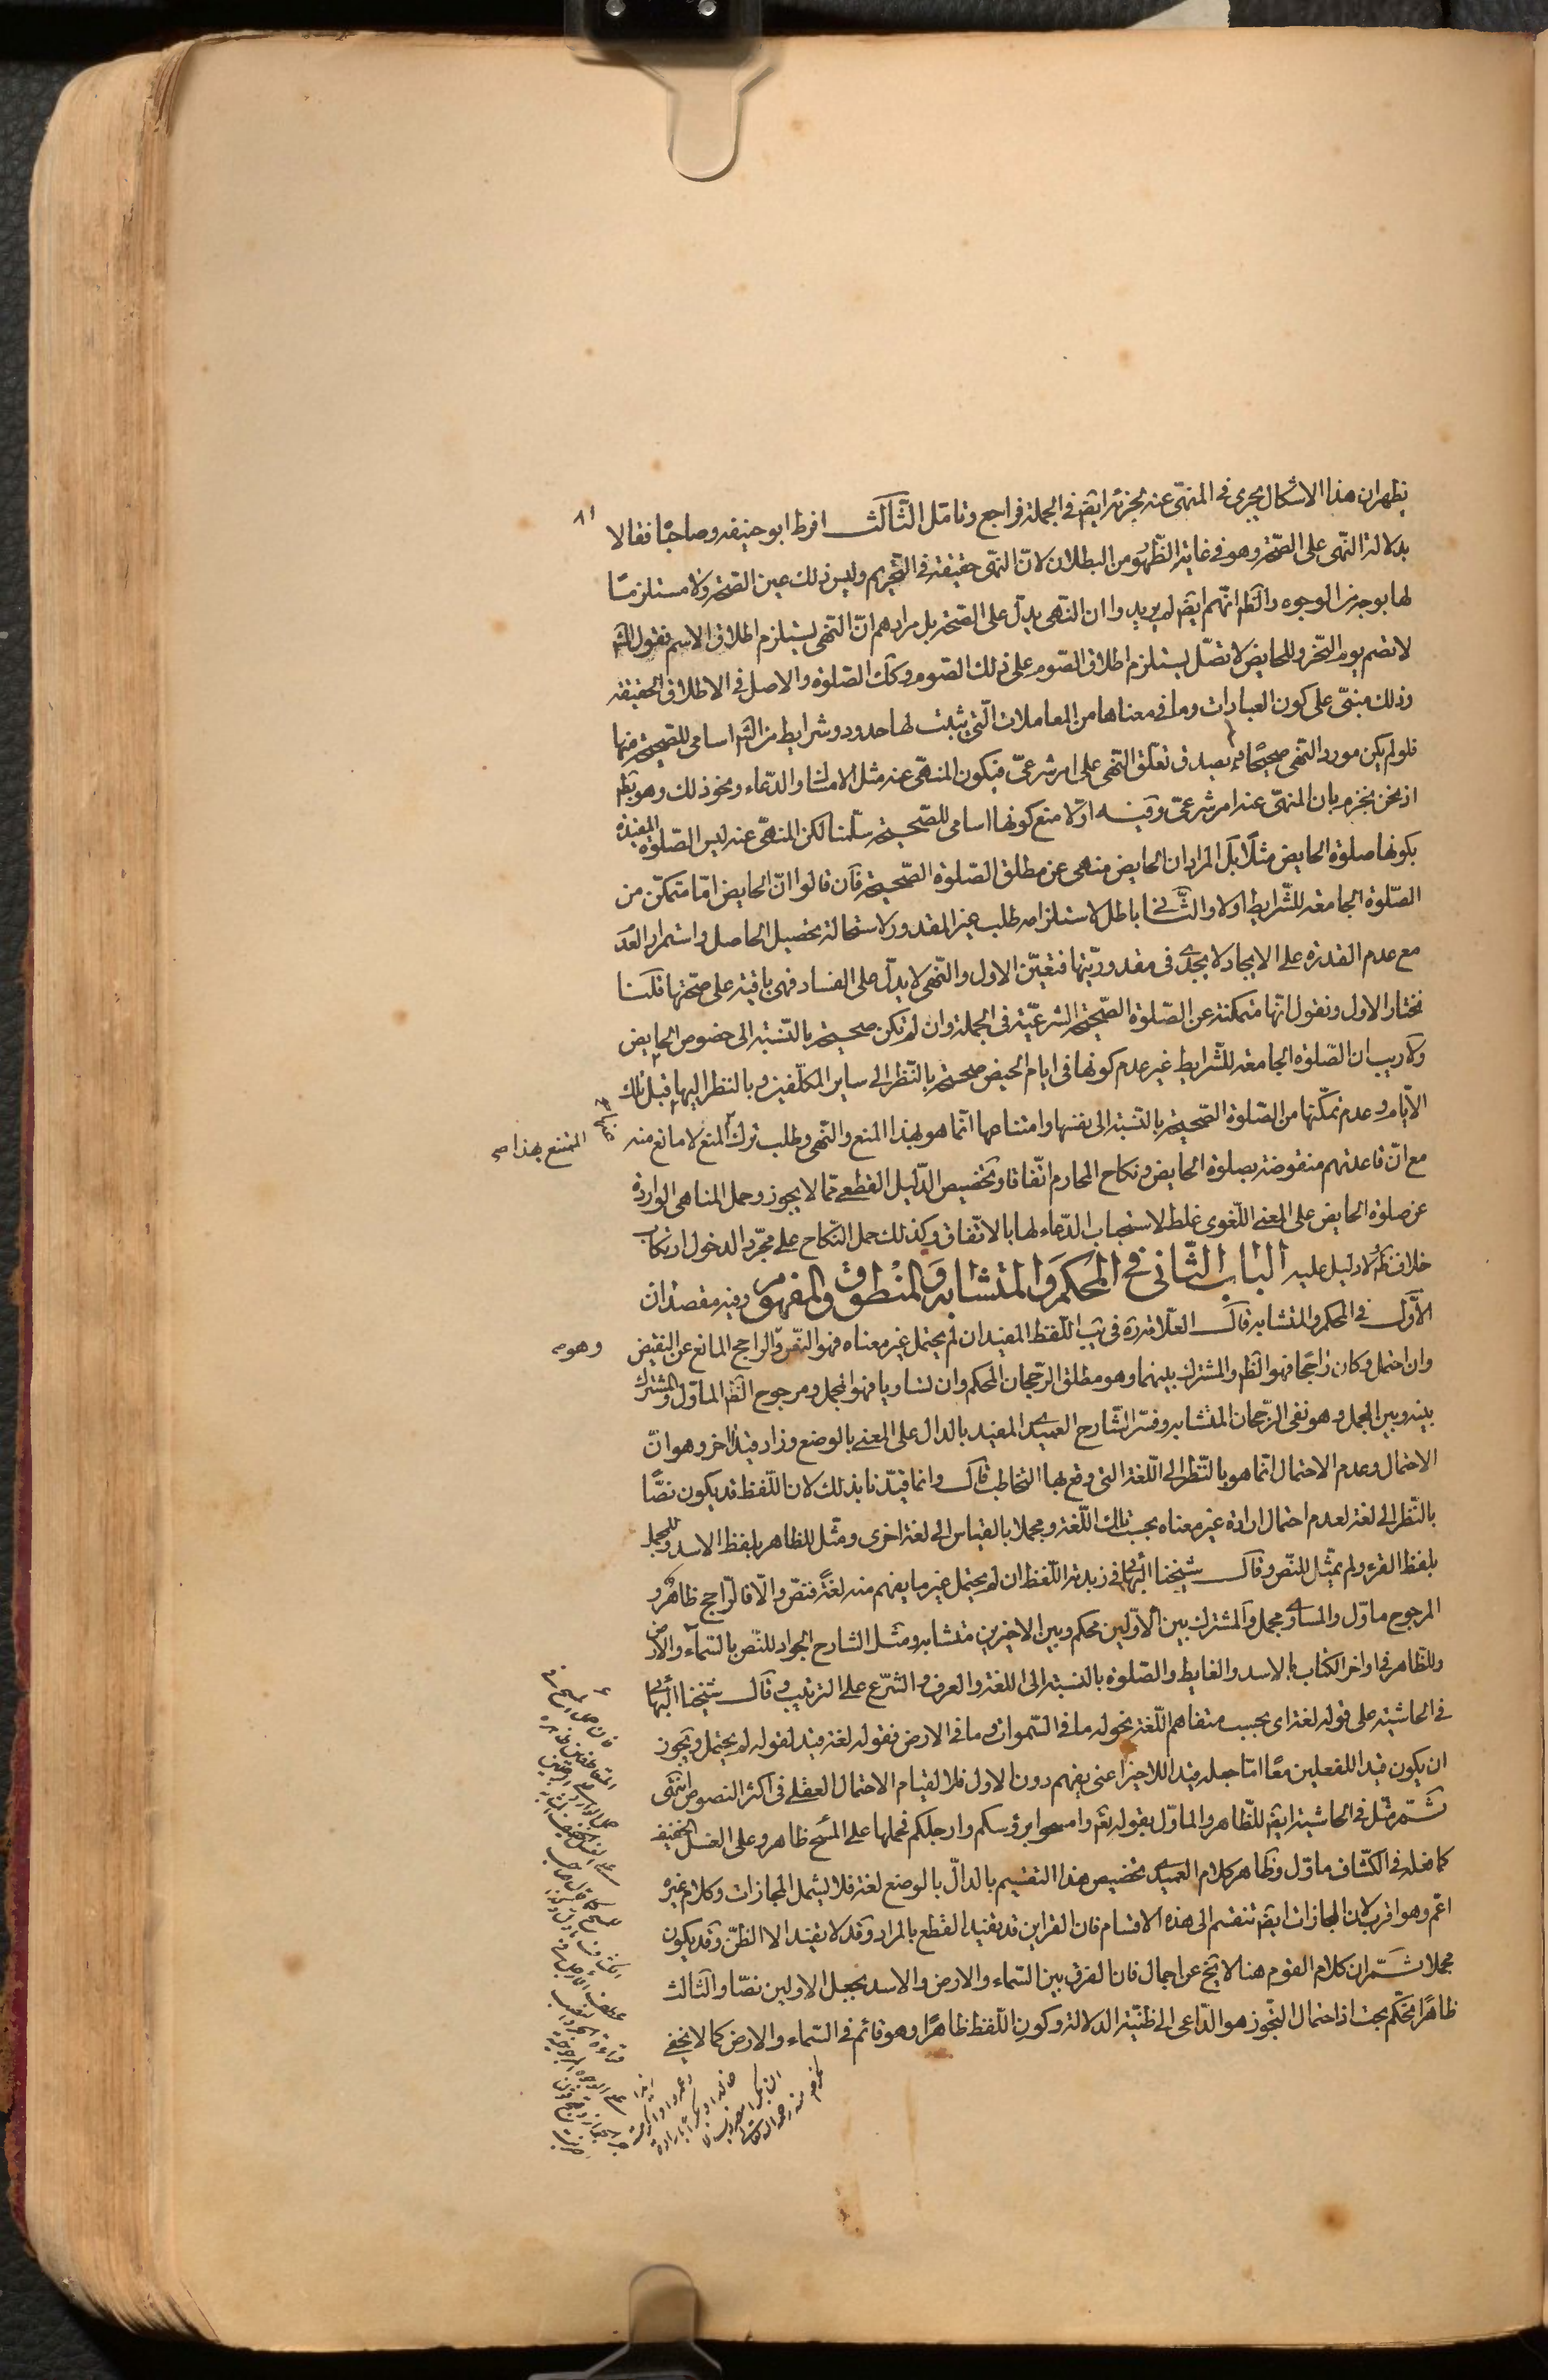 يظهر ان هذا الاشكال يجرى فى المنهىّ عنه لجزئه ايضه فى الجملة فراجع وتامّل الثّالث افرط ابو حنيفه وصاحباه فقالا
٨١
بدلالة النّهى على الصّحّة وهو فى غاية الظّهور من البطلان لانّ النهى حقيقة فى التّحريم وليس ذلك عين الصّحّة ولا مستلزمًا
لها بوجه من الوجوه والظّ انّهم ايضه لم يريدوا ان النهى يدلّ على الصّحّة بل مرادهم انّ النّهى يستلزم اطلاق الاسم فقول الشّ
لا تصم يوم النّحر وللحايض لا تصلّ يستلزم اطلاق الصّوم على ذلك الصّوم وكك الصّلوة والاصل فى الاطلاق الحقيقة
وذلك مبنىّ على كون العبادات وما فى معناها من المعاملات الّتى يثبت لها حدود وشرايط من الشّ اسامى للصّحيحة منها
فلو لم يكن مورد النّهى صحيحًا لم يصدق تعلّق النّهى على امر شرعىّ فيكون المنهىّ عنه مثل الامساك والدّعاء ونحو ذلك وهو بط
اذ نحن نجزم بان المنهىّ عنه امر شرعىّ وفيه اولا منع كونها اسامى للصّحيحة سلّمنا لكن المنهىّ عنه ليس الصّلوة المقيّدة
بكونها صلوة الحايض مثلًا بل المراد ان الحايض منهى عن مطلق الصّلوة الصّحيحة فان قالوا انّ الحايض امّا متمكّن من
الصّلوة الجامعة للشّرايط اولا والثّانى باطل لاستلزامه طلب غير المقدور لاستحالة تحصيل الحاصل واستمرار العدم
مع عدم القدرة على الايجاد لا يجدى فى مقدوريّتها فتعيّن الاول والنّهى لا يدلّ على الفساد فهى باقية على صحّتها قلنا
نختار الاول ونقول انّها متمكنة عن الصّلوة الصّحيحة الشرعيّة فى الجملة وان لم تكن صحيحة بالنّسبة الى خصوص الحايض
ولا ريب ان الصّلوة الجامعة للشّرايط غير عدم كونها فى ايام الحيض صحيحة بالنّظر الى ساير المكلّفين وبالنظر اليها قبل تلك
الايّام وعدم تمكّنها من الصّلوة الصّحيحة بالنّسبة الى نفسها وامتناعها انّما هو لهذا المنع والنّهى وطلب ترك المنع لا مانع منه
الممتنع بهذا صح
مع انّ قاعدتهم منقوضة بصلوة الحايض ونكاح المحارم اتّفاقا وتخصيص الدّليل القطعى ممّا لا يجوز وحمل المناهى الواردة
عن صلوة الحايض على المعنى اللّغوى غلط لاستحباب الدّعاء لها بالاتّفاق وكذلك حمل النّكاح على مجرّد الدخول ارتكاب
خلاف ظ ولا دليل عليه الباب الثّانى فى المحكم والمتشابه والمنطوق والمفهوم وفيه مقصدان
الاوّل فى المحكم والمتشابه قال العلّامة ره فى يب اللّفظ المفيد ان لم يحتمل غير معناه فهو النّصّ والراجح المانع عن النقيض
وهو صح
وان احتمل وكان راجحًا فهو الظّ والمشترك بينهما وهو مطلق الرّجحان المحكم وان تساويا فهو المجمل ومرجوح الظّ المأوّل والمشترك
بينه وبين المجمل وهو نفى الرّجحان المتشابه وفسّر الشّارح العميدى المفيد بالدال على المعنى بالوضع وزاد قيدا اخر وهو انّ
الاحتمال وعدم الاحتمال انّما هو بالنّظر الى اللّغة التى وقع بها التخاطب قال وانما قيّدنا بذلك لان اللّفظ قد يكون نصًّا
بالنّظر الى لغة لعدم احتمال ارادة غير معناه بحسب تلك اللّغة ومجملا بالقياس الى لغة اخرى ومثّل للظاهر بلفظ الاسد وللمجمل
بلفظ القرء ولم يمثّل للنّص وقال شيخنا البهائى فى زبدته اللّفظ ان لم يحتمل غير ما يفهم منه لغةً فنصّ والّا فالرّاجح ظاهر و
المرجوح مأوّل والمساوى مجمل والمشترك بين الاوّلين محكم وبين الاخيرين متشابه ومثّل الشارح الجواد للنّص بالسّماء والارض
وللظّاهر فى اواخر الكتاب بالاسد والغايط والصّلوة بالنسبة الى اللغة والعرف والشّرع على الترتيب وقال شيخنا البهائى
فى الحاشية على قوله لغة اى بحسب متفاهم اللّغة نحو له ما فى السّموات وما فى الارض فقوله لغة قيد لقوله لم يحتمل ويجوز
ان يكون قيد اللفعلين معًا امّا جعله قيد اللاخير اعنى يفهم دون الاول فلا لقيام الاحتمال العقلى فى اكثر النصوص انتهى
ثمّ مثّل فى الحاشية ايضه للظّاهر والمأوّل بقوله تعالى وامسحوا برؤسكم وارجلكم فحملها على المسح ظاهر وعلى الغسل الخفيف
كما فعله فى الكشّاف مأوّل وظاهر كلام العميدى تخصيص هذا التقسيم بالدالّ بالوضع لغة فلا يشمل المجازات وكلام غيره
اعم وهو اقرب لان المجازات ايضه تنقسم الى هذه الاقسام فان القراين قد يفيد القطع بالمراد وقد لا يفيد الا الظنّ وقد يكون
مجملا ثمّ ان كلام القوم هنا لا يخ عن اجمال فان الفرق بين السّماء والارض والاسد بجعل الاولين نصّا والثالث
ظاهرًا تحكّم بحت اذ احتمال التجّوز هو الدّاعى الى ظنّية الدلالة وكون اللّفظ ظاهرًا وهو قائم فى السّماء والارض كما لا يخفى